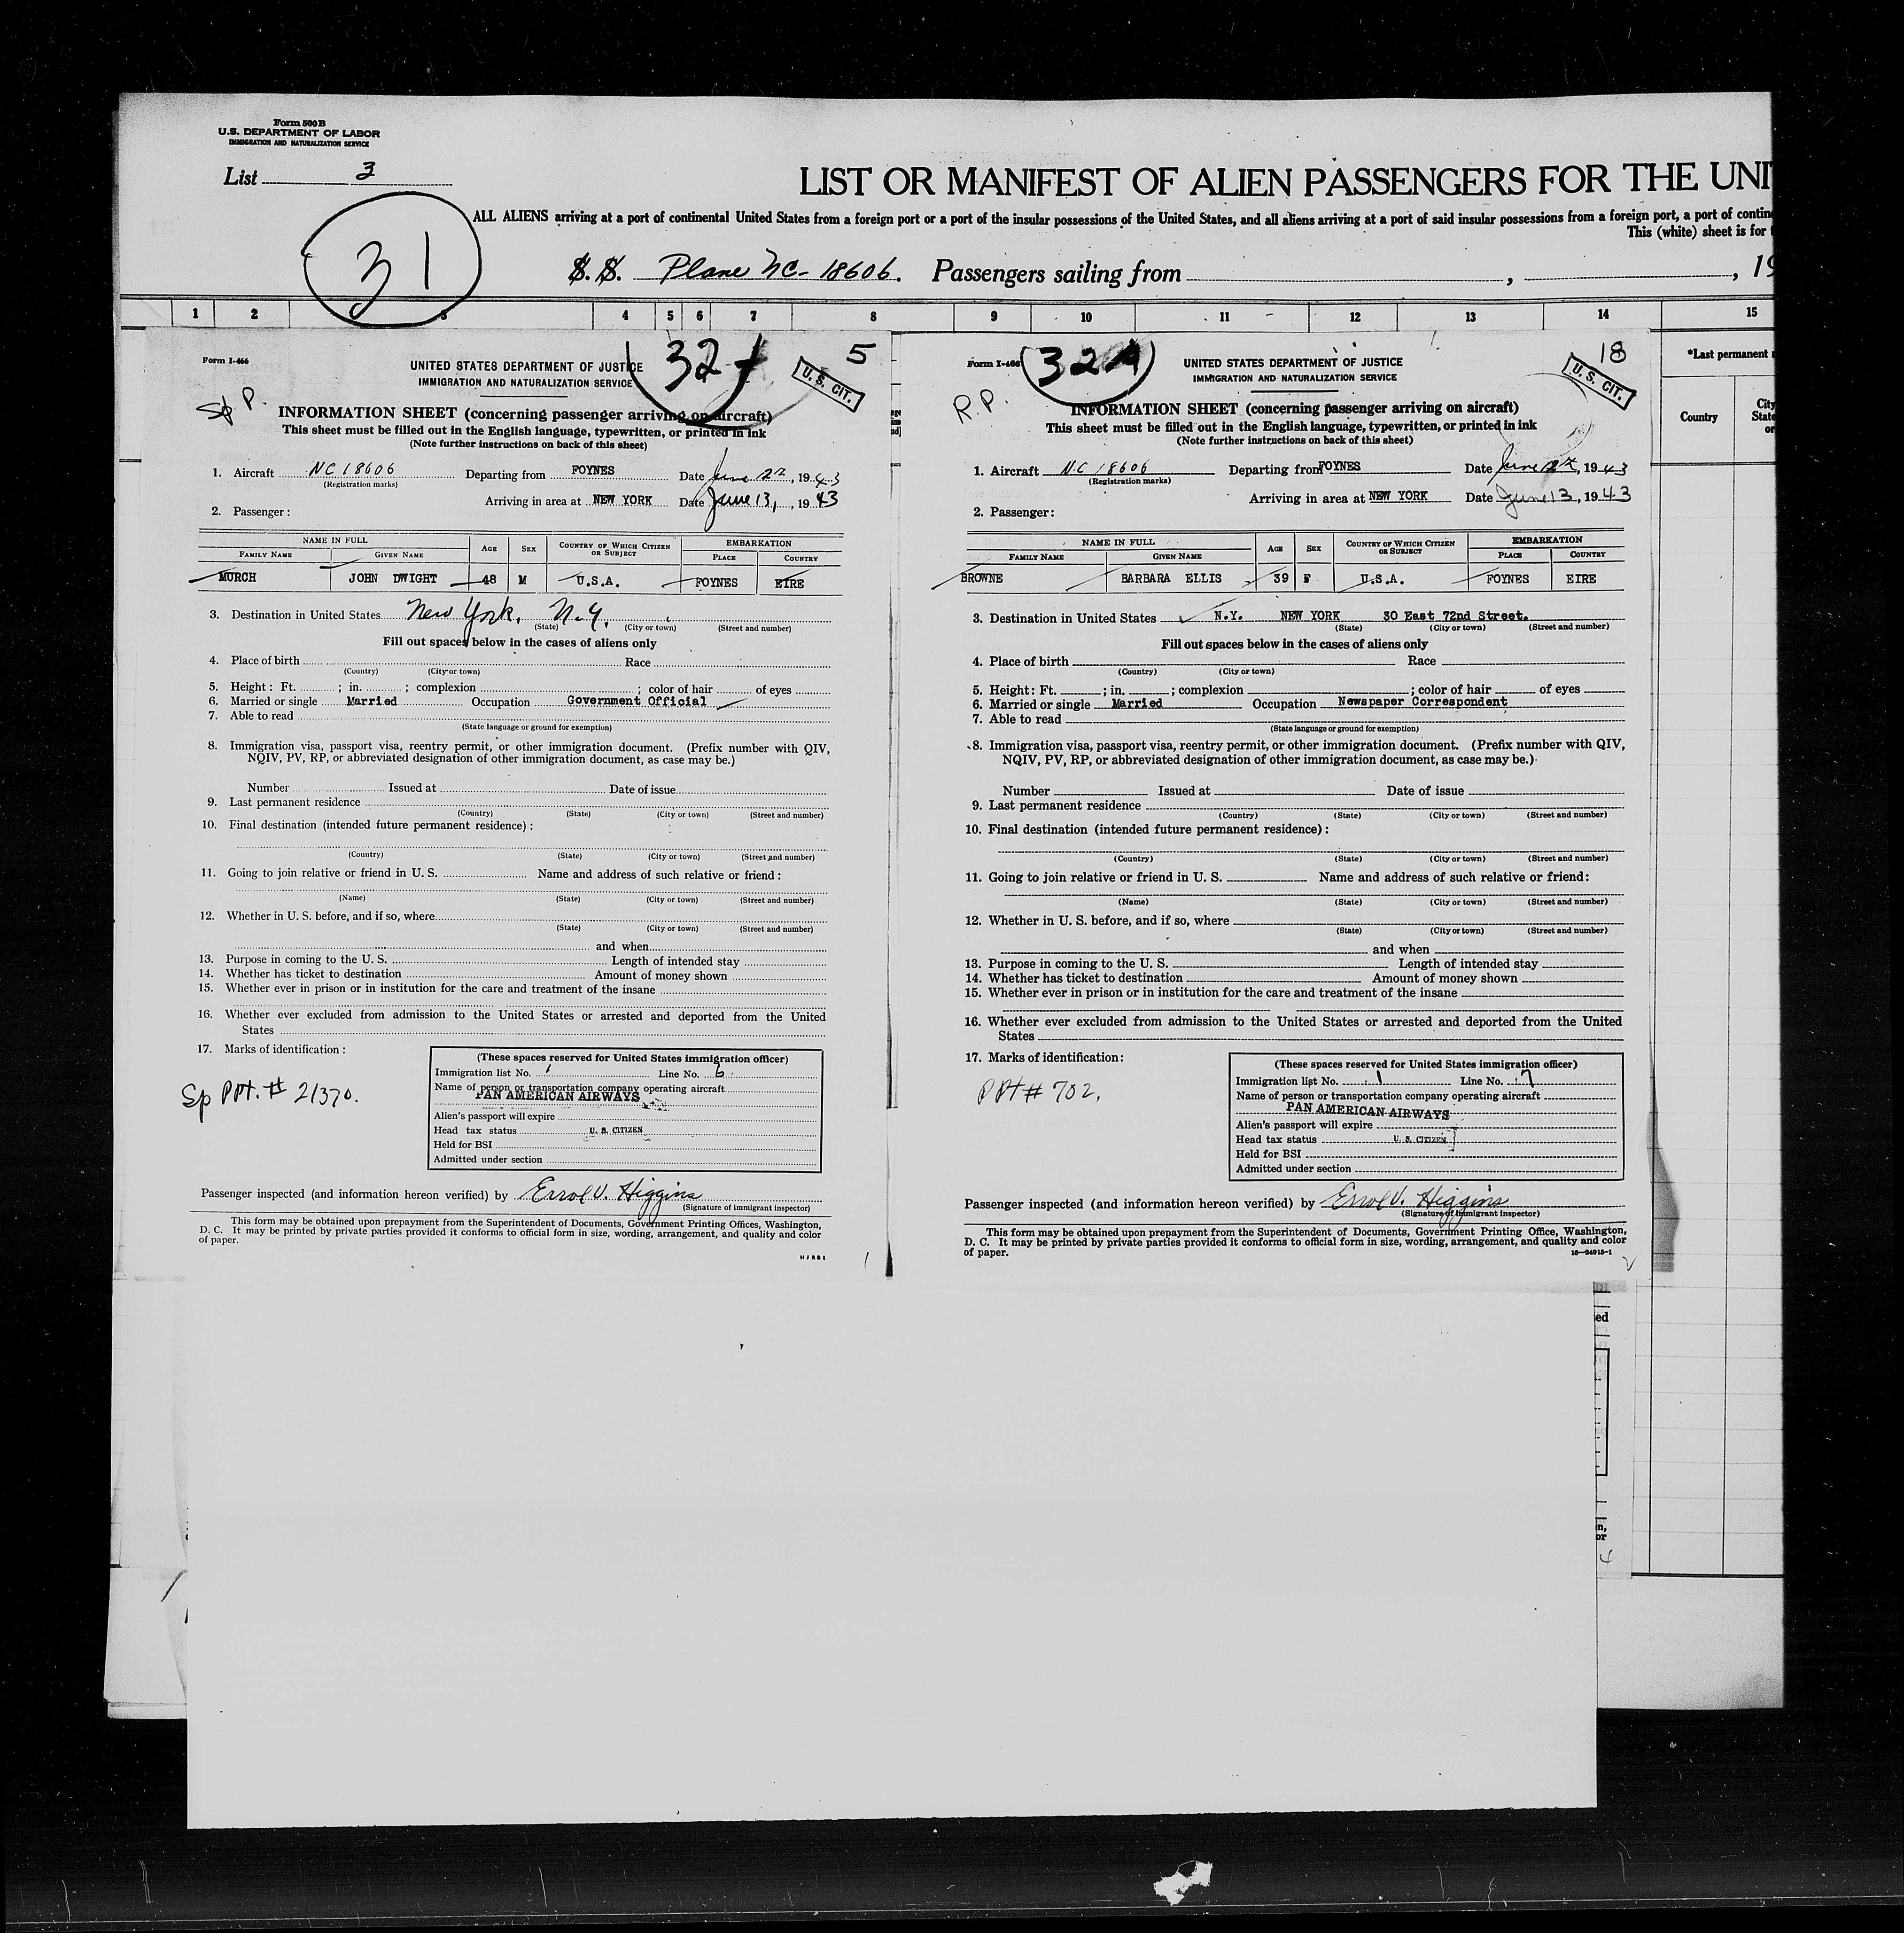 Form 500 B
U.S. DEPARTMENT OF LABOR
IMMIGRATION AND NATURALIZATION SERVICE
List 3
LIST OR MANIFEST OF ALIEN PASSENGERS FOR THE UNI
ALL ALIENS arriving at a port of continental United States from a foreign port or a port of the insular possessions of the United States, and all aliens arriving at a port of said insular possessions from a foreign port, a port of contin
This (white) sheet is for
31
S. S. Plane NC-18606. Passengers sailing from , , 19
1 2 3 4 5 6 7 8 9 10 11 12 13 14 15
*Last permanent
Country
City
State
or
Form I-466
32
5
UNITED STATES DEPARTMENT OF JUSTICE
IMMIGRATION AND NATURALIZATION SERVICE
U. S. CIT.
Sp P.
INFORMATION SHEET (concerning passenger arriving on aircraft)
This sheet must be filled out in the English language, typewritten, or printed in ink
(Note further instructions on back of this sheet)
1. Aircraft NC 18606 Departing from FOYNES Date June , 1943
(Registration marks)
Arriving in area at NEW YORK Date June 13, , 1943
2. Passenger:
NAME IN FULL AGE SEX COUNTRY OF WHICH CITIZEN OR SUBJECT EMBARKATION
FAMILY NAME GIVEN NAME PLACE COUNTRY
MURCH JOHN DWIGHT 48 M U.S.A. FOYNES EIRE
3. Destination in United States New York, N.Y.
(State) (City or town) (Street and number)
Fill out spaces below in the cases of aliens only
4. Place of birth Race
(Country) (City or town)
5. Height: Ft. ; in. ; complexion ; color of hair of eyes
6. Married or single Married Occupation Government Official
7. Able to read
(State language or ground for exemption)
8. Immigration visa, passport visa, reentry permit, or other immigration document. (Prefix number with QIV,
NQIV, PV, RP, or abbreviated designation of other immigration document, as case may be.)
Number Issued at Date of issue
9. Last permanent residence
(Country) (State) (City or town) (Street and number)
10. Final destination (intended future permanent residence):
(Country) (State) (City or town) (Street and number)
11. Going to join relative or friend in U. S. Name and address of such relative or friend:
(Name) (State) (City or town) (Street and number)
12. Whether in U. S. before, and if so, where
(State) (City or town) (Street and number)
and when
13. Purpose in coming to the U. S. Length of intended stay
14. Whether has ticket to destination Amount of money shown
15. Whether ever in prison or in institution for the care and treatment of the insane
16. Whether ever excluded from admission to the United States or arrested and deported from the United
States
17. Marks of identification:
Sp PPt. # 21370.
(These spaces reserved for United States immigration officer)
Immigration list No. 1 Line No. 6
Name of person or transportation company operating aircraft
PAN AMERICAN AIRWAYS
Alien's passport will expire
Head tax status U. S. CITIZEN
Held for BSI
Admitted under section
Passenger inspected (and information hereon verified) by Errol V. Higgins
(Signature of immigrant inspector)
This form may be obtained upon prepayment from the Superintendent of Documents, Government Printing Offices, Washington,
D. C. It may be printed by private parties provided it conforms to official form in size, wording, arrangement, and quality and color
of paper.
Form I-466
32A
18
UNITED STATES DEPARTMENT OF JUSTICE
IMMIGRATION AND NATURALIZATION SERVICE
U. S. CIT.
R.P.
INFORMATION SHEET (concerning passenger arriving on aircraft)
This sheet must be filled out in the English language, typewritten, or printed in ink
(Note further instructions on back of this sheet)
1. Aircraft NC 18606 Departing from FOYNES Date June , 1943
(Registration marks)
Arriving in area at NEW YORK Date June 13 , 1943
2. Passenger:
NAME IN FULL AGE SEX COUNTRY OF WHICH CITIZEN OR SUBJECT EMBARKATION
FAMILY NAME GIVEN NAME PLACE COUNTRY
BROWNE BARBARA ELLIS 39 F U.S.A. FOYNES EIRE
3. Destination in United States N.Y. NEW YORK 30 East 72nd Street.
(State) (City or town) (Street and number)
Fill out spaces below in the cases of aliens only
4. Place of birth Race
(Country) (City or town)
5. Height: Ft. ; in. ; complexion ; color of hair of eyes
6. Married or single Married Occupation Newspaper Correspondent
7. Able to read
(State language or ground for exemption)
8. Immigration visa, passport visa, reentry permit, or other immigration document. (Prefix number with QIV,
NQIV, PV, RP, or abbreviated designation of other immigration document, as case may be.)
Number Issued at Date of issue
9. Last permanent residence
(Country) (State) (City or town) (Street and number)
10. Final destination (intended future permanent residence):
(Country) (State) (City or town) (Street and number)
11. Going to join relative or friend in U. S. Name and address of such relative or friend:
(Name) (State) (City or town) (Street and number)
12. Whether in U. S. before, and if so, where
(State) (City or town) (Street and number)
and when
13. Purpose in coming to the U. S. Length of intended stay
14. Whether has ticket to destination Amount of money shown
15. Whether ever in prison or in institution for the care and treatment of the insane
16. Whether ever excluded from admission to the United States or arrested and deported from the United
States
17. Marks of identification:
PPt # 702.
(These spaces reserved for United States immigration officer)
Immigration list No. 1 Line No. 7
Name of person or transportation company operating aircraft
PAN AMERICAN AIRWAYS
Alien's passport will expire
Head tax status U. S. CITIZEN
Held for BSI
Admitted under section
Passenger inspected (and information hereon verified) by Errol V. Higgins
(Signature of immigrant inspector)
This form may be obtained upon prepayment from the Superintendent of Documents, Government Printing Office, Washington,
D. C. It may be printed by private parties provided it conforms to official form in size, wording, arrangement, and quality and color
of paper.
16—24915-1